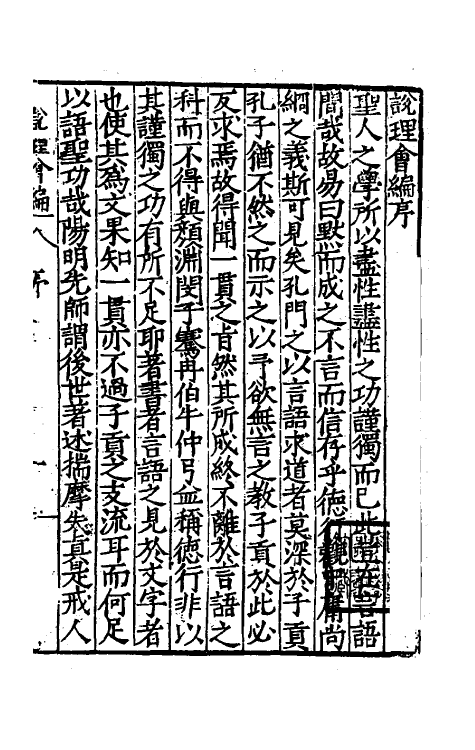 說理會編序
聖人之學所以盡性盡性之功謹獨而已此豈在言語
間哉故易曰默而成之不言而信存乎德行觀中庸尚
絅之義斯可見矣孔門之以言語求道者莫深於子貢
孔子猶不然之而示之以予欲無言之教子貢於此必
反求焉故得聞一貫之旨然其所成終不離於言語之
科而不得與顏淵閔子騫冉伯牛仲弓並稱德行非以
其謹獨之功有所不足耶著書者言語之見於文字者
也使其為文果知一貫亦不過子貢之支流耳而何足
以語聖功哉陽明先師謂後世著述揣摩失真是戒人
說理會編 序 一